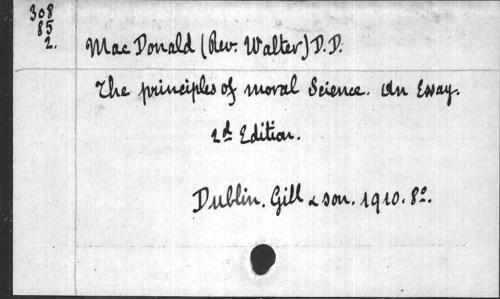 308
85
2.
Mac Donald (Rev. Walter) D.D.
The principles of moral Science. An Essay.
2d Edition.
Dublin. Gill & son. 1910. 8o.